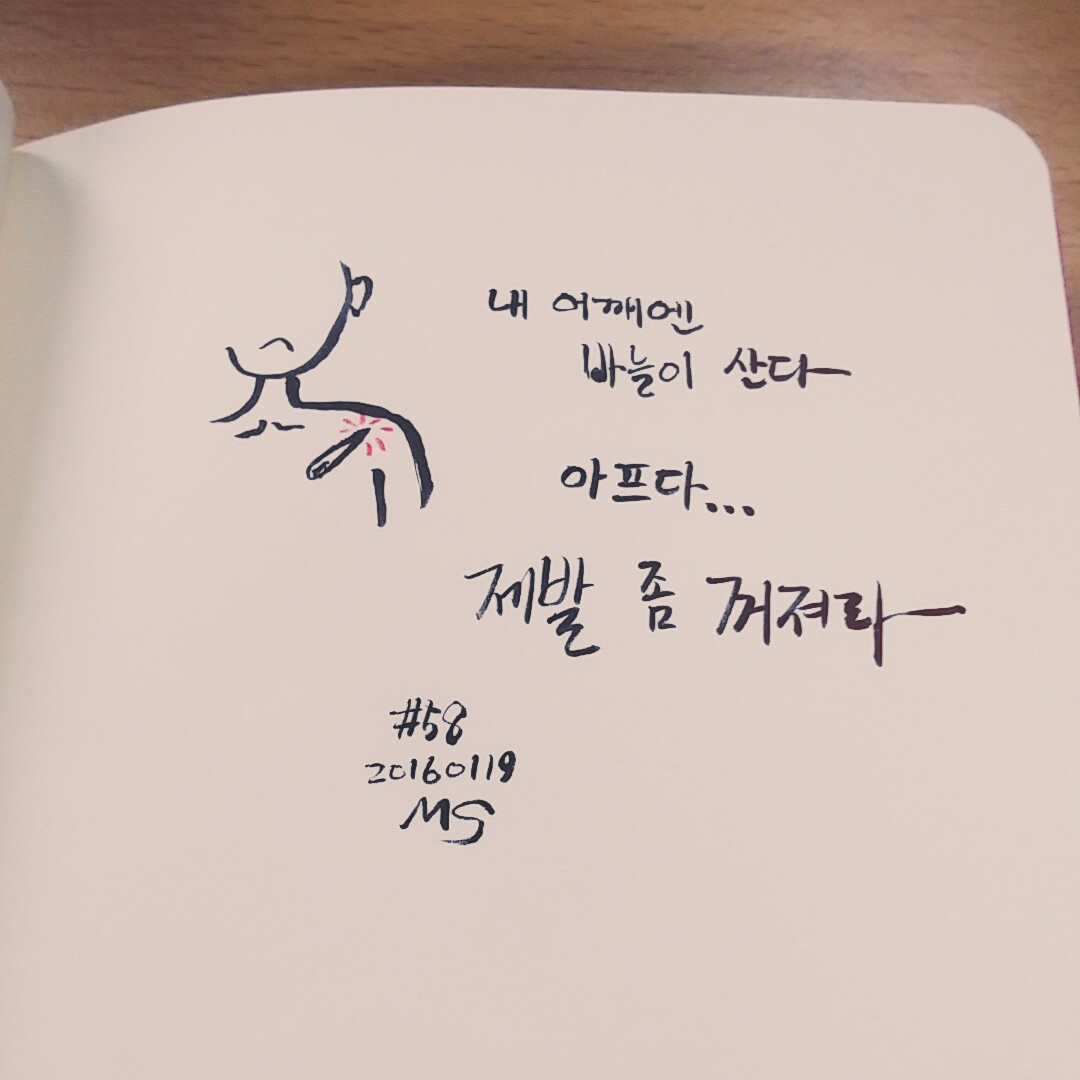 내 어깨엔
바늘이 산다
아프다...
제발 좀 꺼져라
#58
20160119
MS